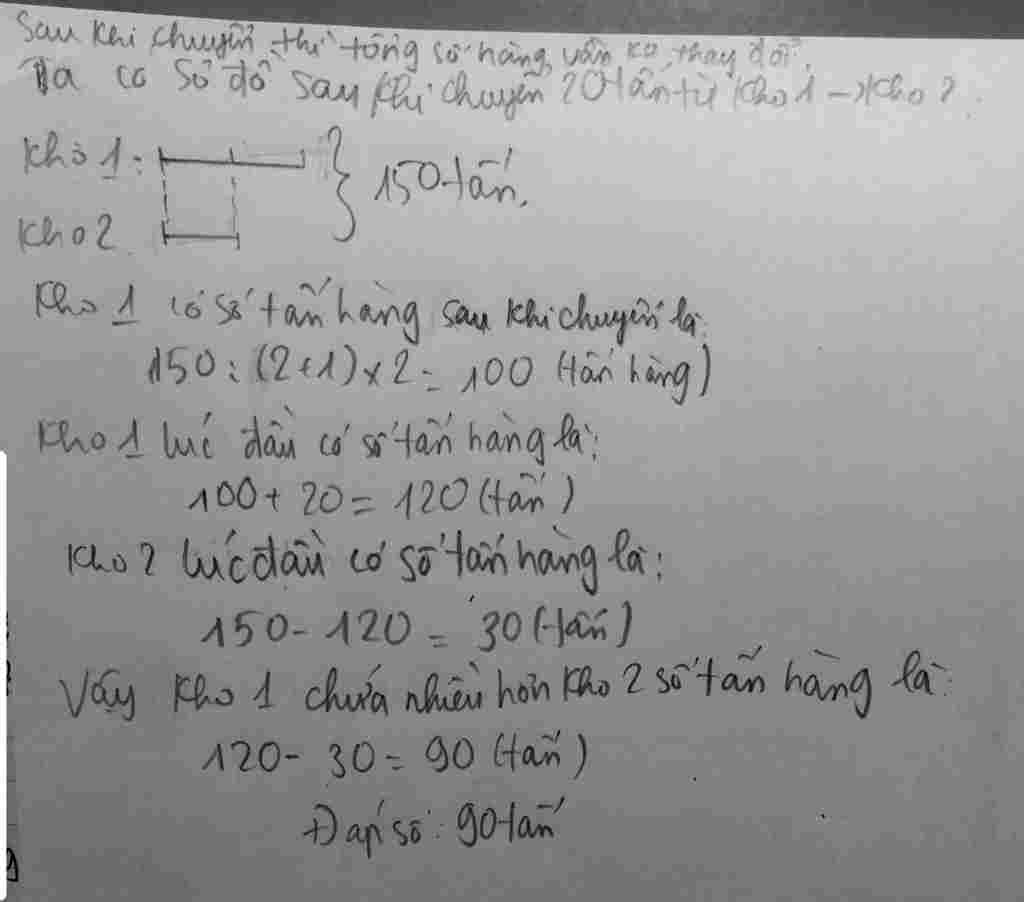 Sau khi chuyển thì tổng số hàng vẫn ko thay đổi.
Ta có sơ đồ sau khi chuyển 20 tấn từ kho 1 -> kho 2.
Kho 1:
150 tấn.
Kho 2
Kho 1 có số tấn hàng sau khi chuyển là:
150 : (2+1) x 2 = 100 (tấn hàng)
Kho 1 lúc đầu có số tấn hàng là:
100 + 20 = 120 (tấn)
Kho 2 lúc đầu có số tấn hàng là:
150 - 120 = 30 (tấn)
Vậy kho 1 chứa nhiều hơn kho 2 số tấn hàng là:
120 - 30 = 90 (tấn)
Đáp số: 90 tấn